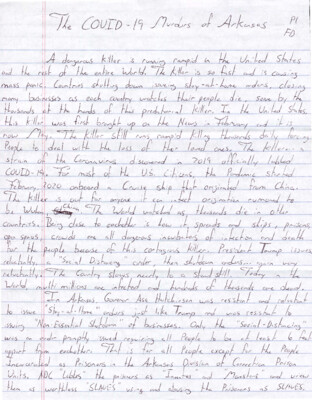 The COVID-19 Murders of Arkansas
P1
FO
A dangerous killer is running rampid in the United States
and the rest of the entire World. The killer is so fast and is causing
mass panic. Countries shutting down issuing stay-at-home orders, closing
many businesses as each country watches their people die, some by the
thousands at the hands of this predatorial killer. In the United States
this killer was first brought up on the News in February and it is
now May. The killer still runs rampid killing thousands daily forcing
People to deal with the loss of their loved ones. The killer: a
strain of the Coronavirus discovered in 2019 officially labeled
COVID-19. For most of the U.S. Citizens, the Pandemic started
February 2020 onboard a Cruise ship that originated from China.
The killer is out for anyone it can infect origination rumored to
be Wuhan, China. The World watched as, thousands die in other
countries. Being close to eachother is how it, spreads and ships, prisons,
open spaces, crowds are all dangerous incubators of infection and death
for the people because of this contagious killer. President Trump issues
reluctantly a "Social Distancing" order, then shutdown orders... again very
reluctantly. The Country stops nearly to a stand still. Today in the
World, multi-millions are infected and hundreds of thousands are dead.
In Arkansas, Governor Asa Hutchinson was resistant and reluctant
to issue "Stay-at-Home" orders just like Trump and was resistant to
issuing "Non Essential Shutdown" of businesses. Only the "Social-Distancing"
was an order promptly issued requiring all People to be at least 6 feet
apart from eachother. That is for all People except for the People
Incarcerated as Prisoners in the Arkansas Division of Correction Prison
Units. ADC labels the prisoners as "Inmates" and "Monsters" and views
them as worthless "SLAVES" using and abusing the Prisoners as SLAVES.